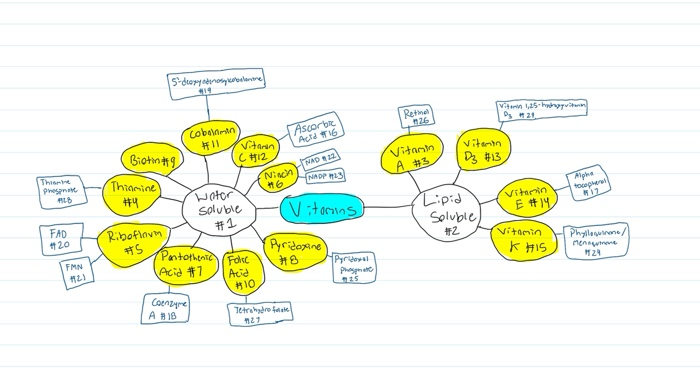 5'-deoxyadenosylcobalamine
#19
Cobalamin
#11
Vitamin
C #12
Ascorbic
Acid #16
Biotin #9
Niacin
#6
NAD #22
NADP #23
Thiamine
phosphate
#28
Thiamine
#4
Water
soluble
#1
Vitamins
Riboflavin
#5
FAD
#20
FMN
#21
Pantothenic
Acid #7
Coenzyme
A #18
Folic
Acid
#10
Tetrahydrofolate
#27
Pyridoxine
#8
Pyridoxal
phosphate
#25
Lipid
Soluble
#2
Retinol
#26
Vitamin
A #3
Vitamin 1,25-hydroxyvitamin
D3
Vitamin
D3 #13
Vitamin
E #14
Alpha
tocopherol
#17
Vitamin
K #15
Phylloquinone/
Menaquinone